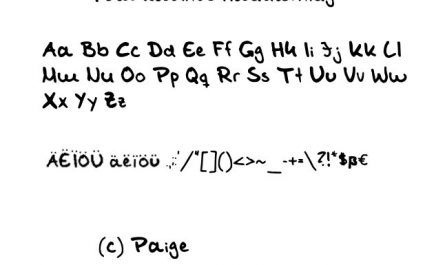 Aa Bb Cc Dd Ee Ff Gg Hh Ii Jj Kk Ll
Mm Nn Oo Pp Qq Rr Ss Tt Uu Vv Ww
Xx Yy Zz
ÄËÏÖÜ äëïöü .,:;'/"[]()<>~_-+=\?!*$ß€
(c) Paige